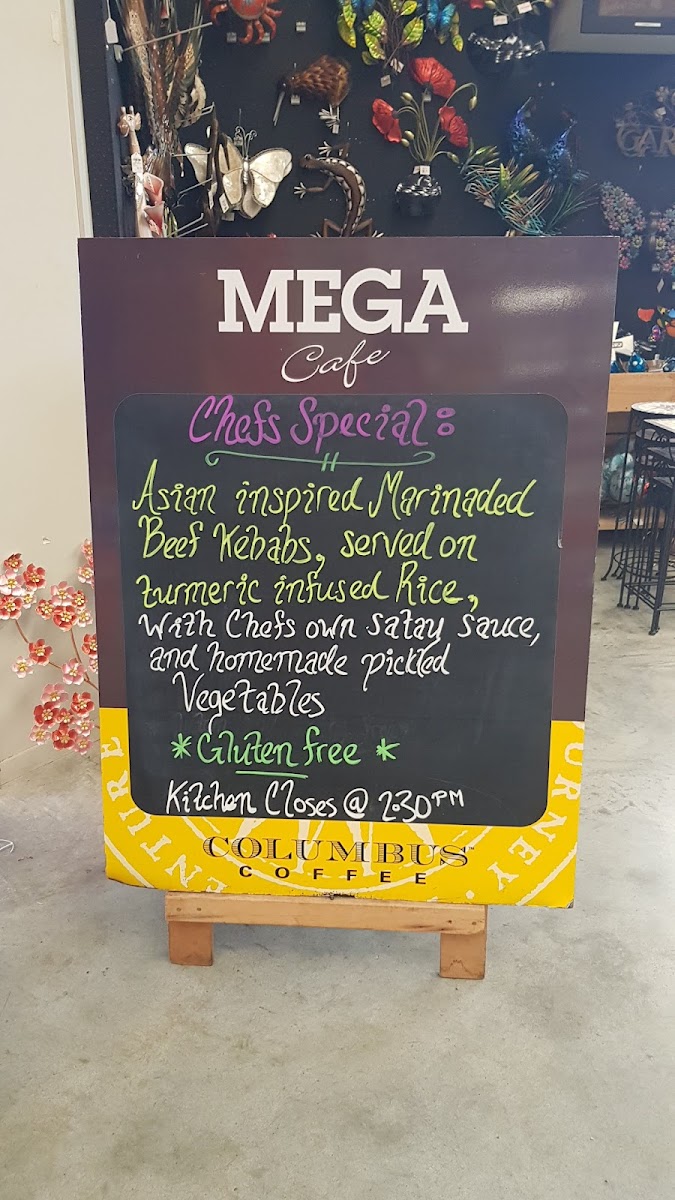 MEGA
Cafe
Chefs Special:
Asian inspired Marinaded
Beef Kebabs, served on
turmeric infused Rice,
with Chefs own satay sauce,
and homemade pickled
Vegetables
*Gluten free *
Kitchen Closes @ 2:30PM
COLUMBUS™
COFFEE